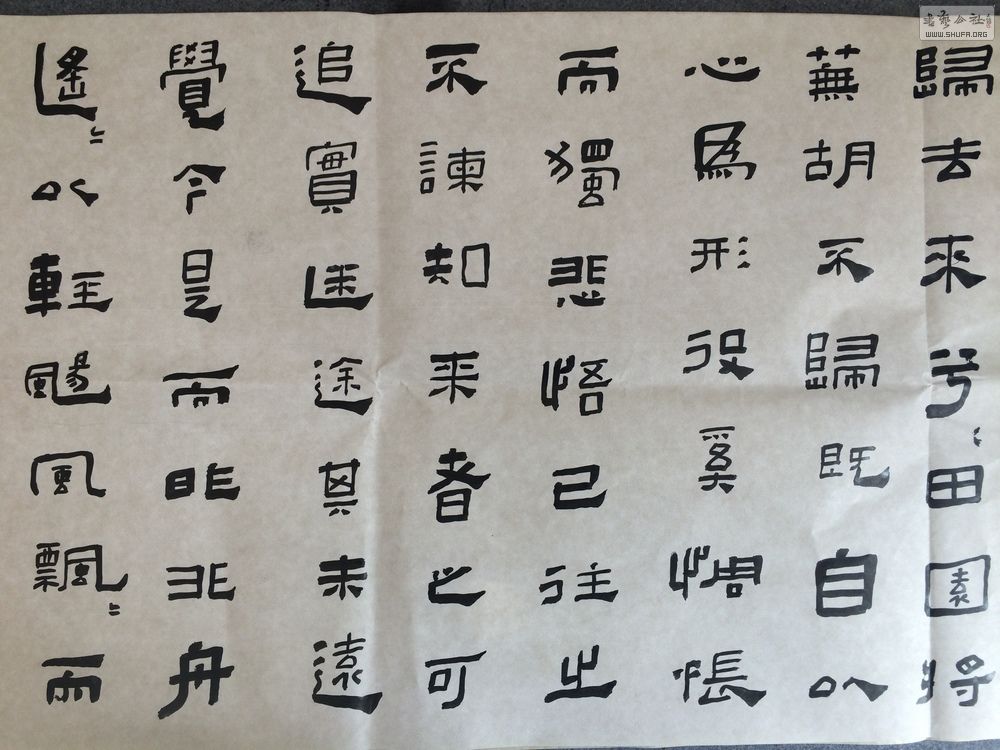 歸去來兮〻田園將
蕪胡不歸既自以
心為形役奚惆悵
而獨悲悟已往之
不諫知来者之可
追實迷途其未遠
覺今是而昨非舟
遙〻以輕颺風飄〻而
書藝公社
WWW.SHUFA.ORG